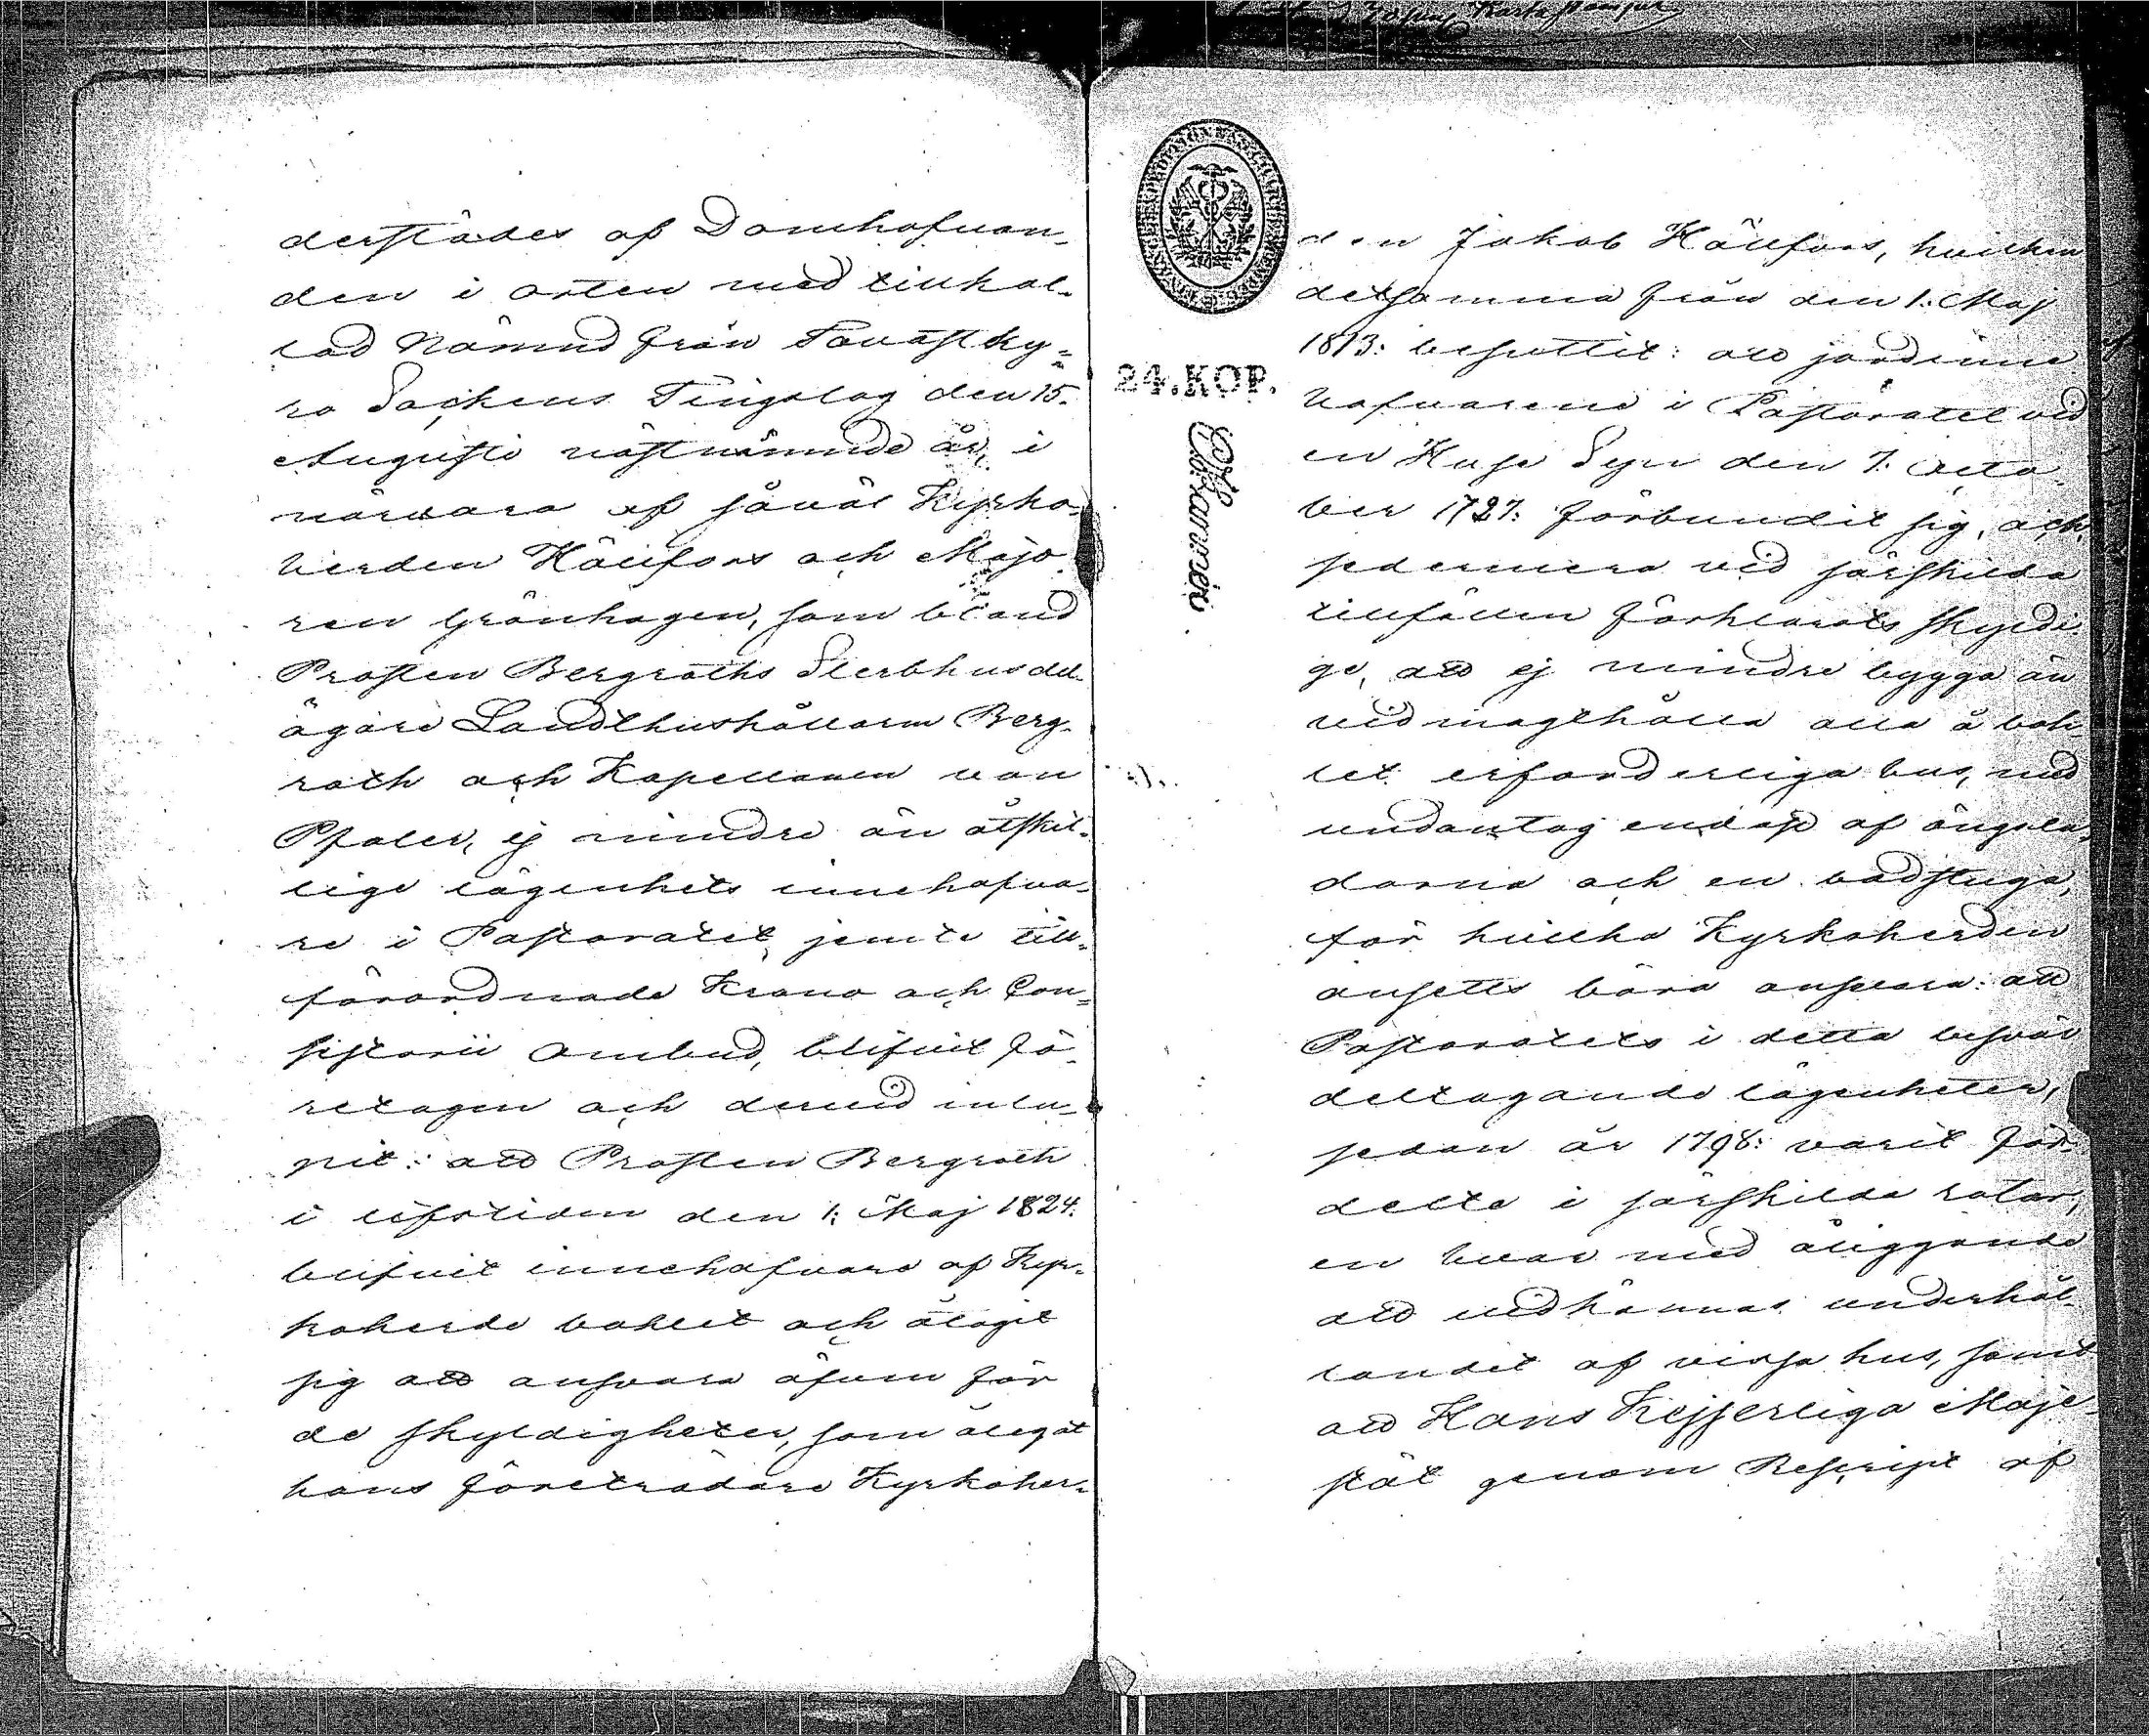 derstädes af Domhafvan-
den i orten med tillkal-
lad Nämnd från Tavastky-
ro Sockens Tingslag den 15.
Augusti nästnämnde år, i
närvara af såväl Kyrko-
herden Hällfors och Majo-
ren Grönhagen, som bland
Prosten Bergroths Sterbhusdel-
ägare Landthushållaren Berg-
roth och Kapellanen von
Pfaler, ej mindre än åtskil-
lige lägenhets innehafva-
re i Pastoratet, jemte till-
förordnade Krono och Con-
sistorii Ombud, blifvit fö-
retagen och dervid inlu-
pit: att Prosten Bergroth
i lifstiden den 1. Maj 1824.
blifvit innehafvare af Kyr-
koherde bohlet och ålagit
sig att ansvara äfven för
de skyldigheter, som ålegat
hans företrädare Kyrkoher-
24.KOP.
den Jakob Hällfors, hvilken
detsamma från den 1. Maj
1813: besuttit: att jordinne
hafvarene i Pastoratet vid
en Huse Syn den 7. Octo-
ber 1727: förbundit sig, och
sedermera vid särskilda
tillfällen förklarats skyldi-
ge, att ej mindre bygga än
vidmagthålla alla å boh-
let erforderliga hus, med
undantag endast af ängsla-
dorna och en badstuga,
för hvilka Kyrkoherden
ansetts böra ansvara: att
Pastoratets i detta besvär
deltagande lägenheter,
sedan år 1798: varit för-
delte i särskilda rotar,
en hvar med åliggande
att vidkännas underhål-
landet af vissa hus, samt
att Hans Kejserliga Maje-
stät genom Rescript af